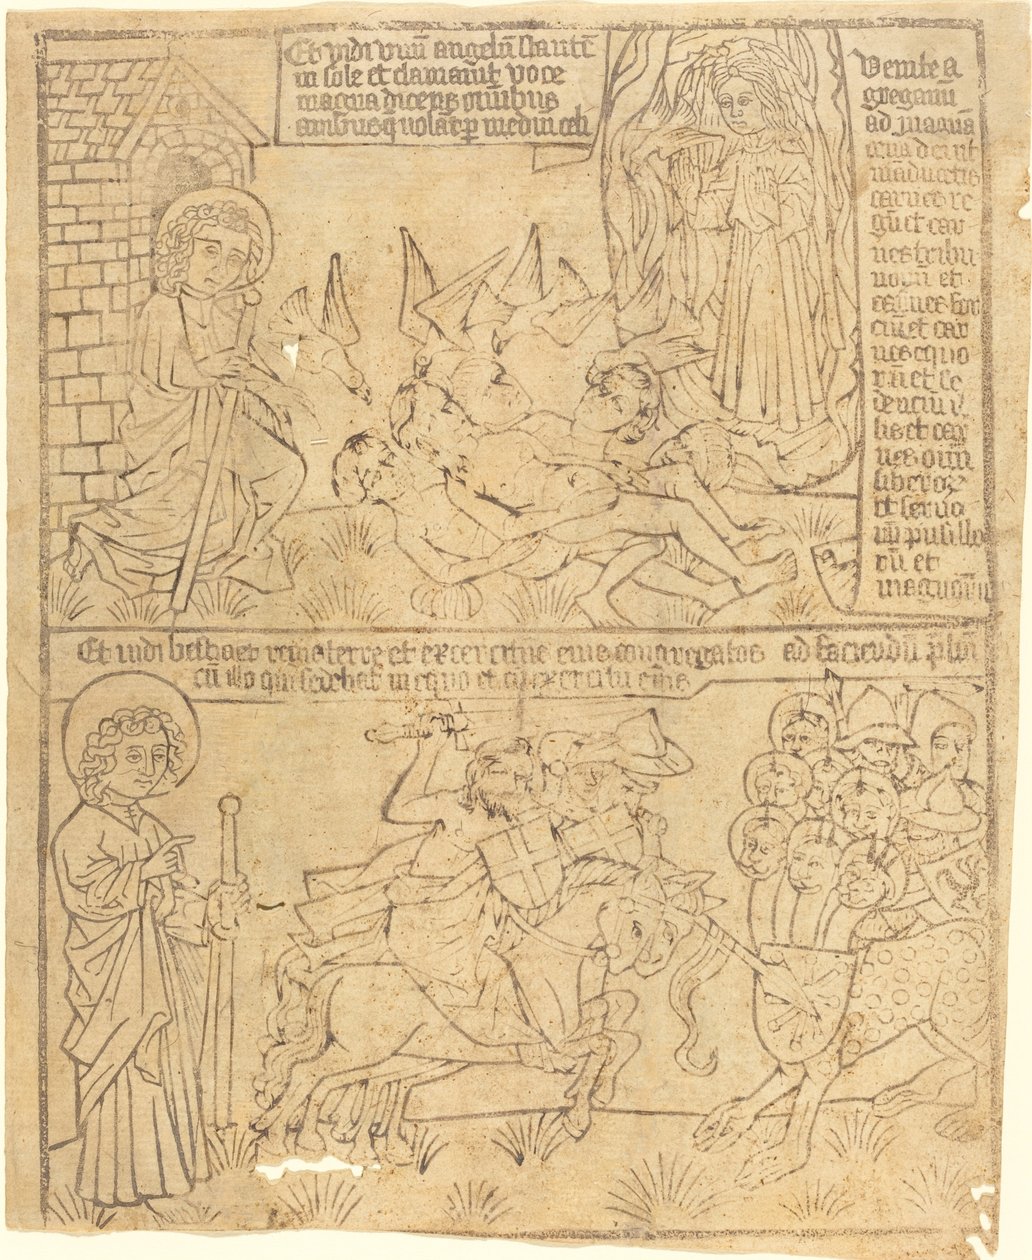 Et vidi unū angelū stantē
in sole et clamavit voce
magna dicens omībus
avibus q̄ volāt ꝑ mediū celi
Venite ā
gregamī
ad magnā
cenā dei ut
māducetis
carnes re
gū et car
nes tribu
norū et
carnes for
ciū et car
nes equo
rū et se
denciū ī
ip̄is et car
nes oīm
liberoꝝ
et servo
rū pusillo
rū et
magnorū
Et vidi bestiā et reges terre et excercitus eius congregatos ad faciendū p̄liū
cū illo qui sedebat in equo et cū exercitu eius